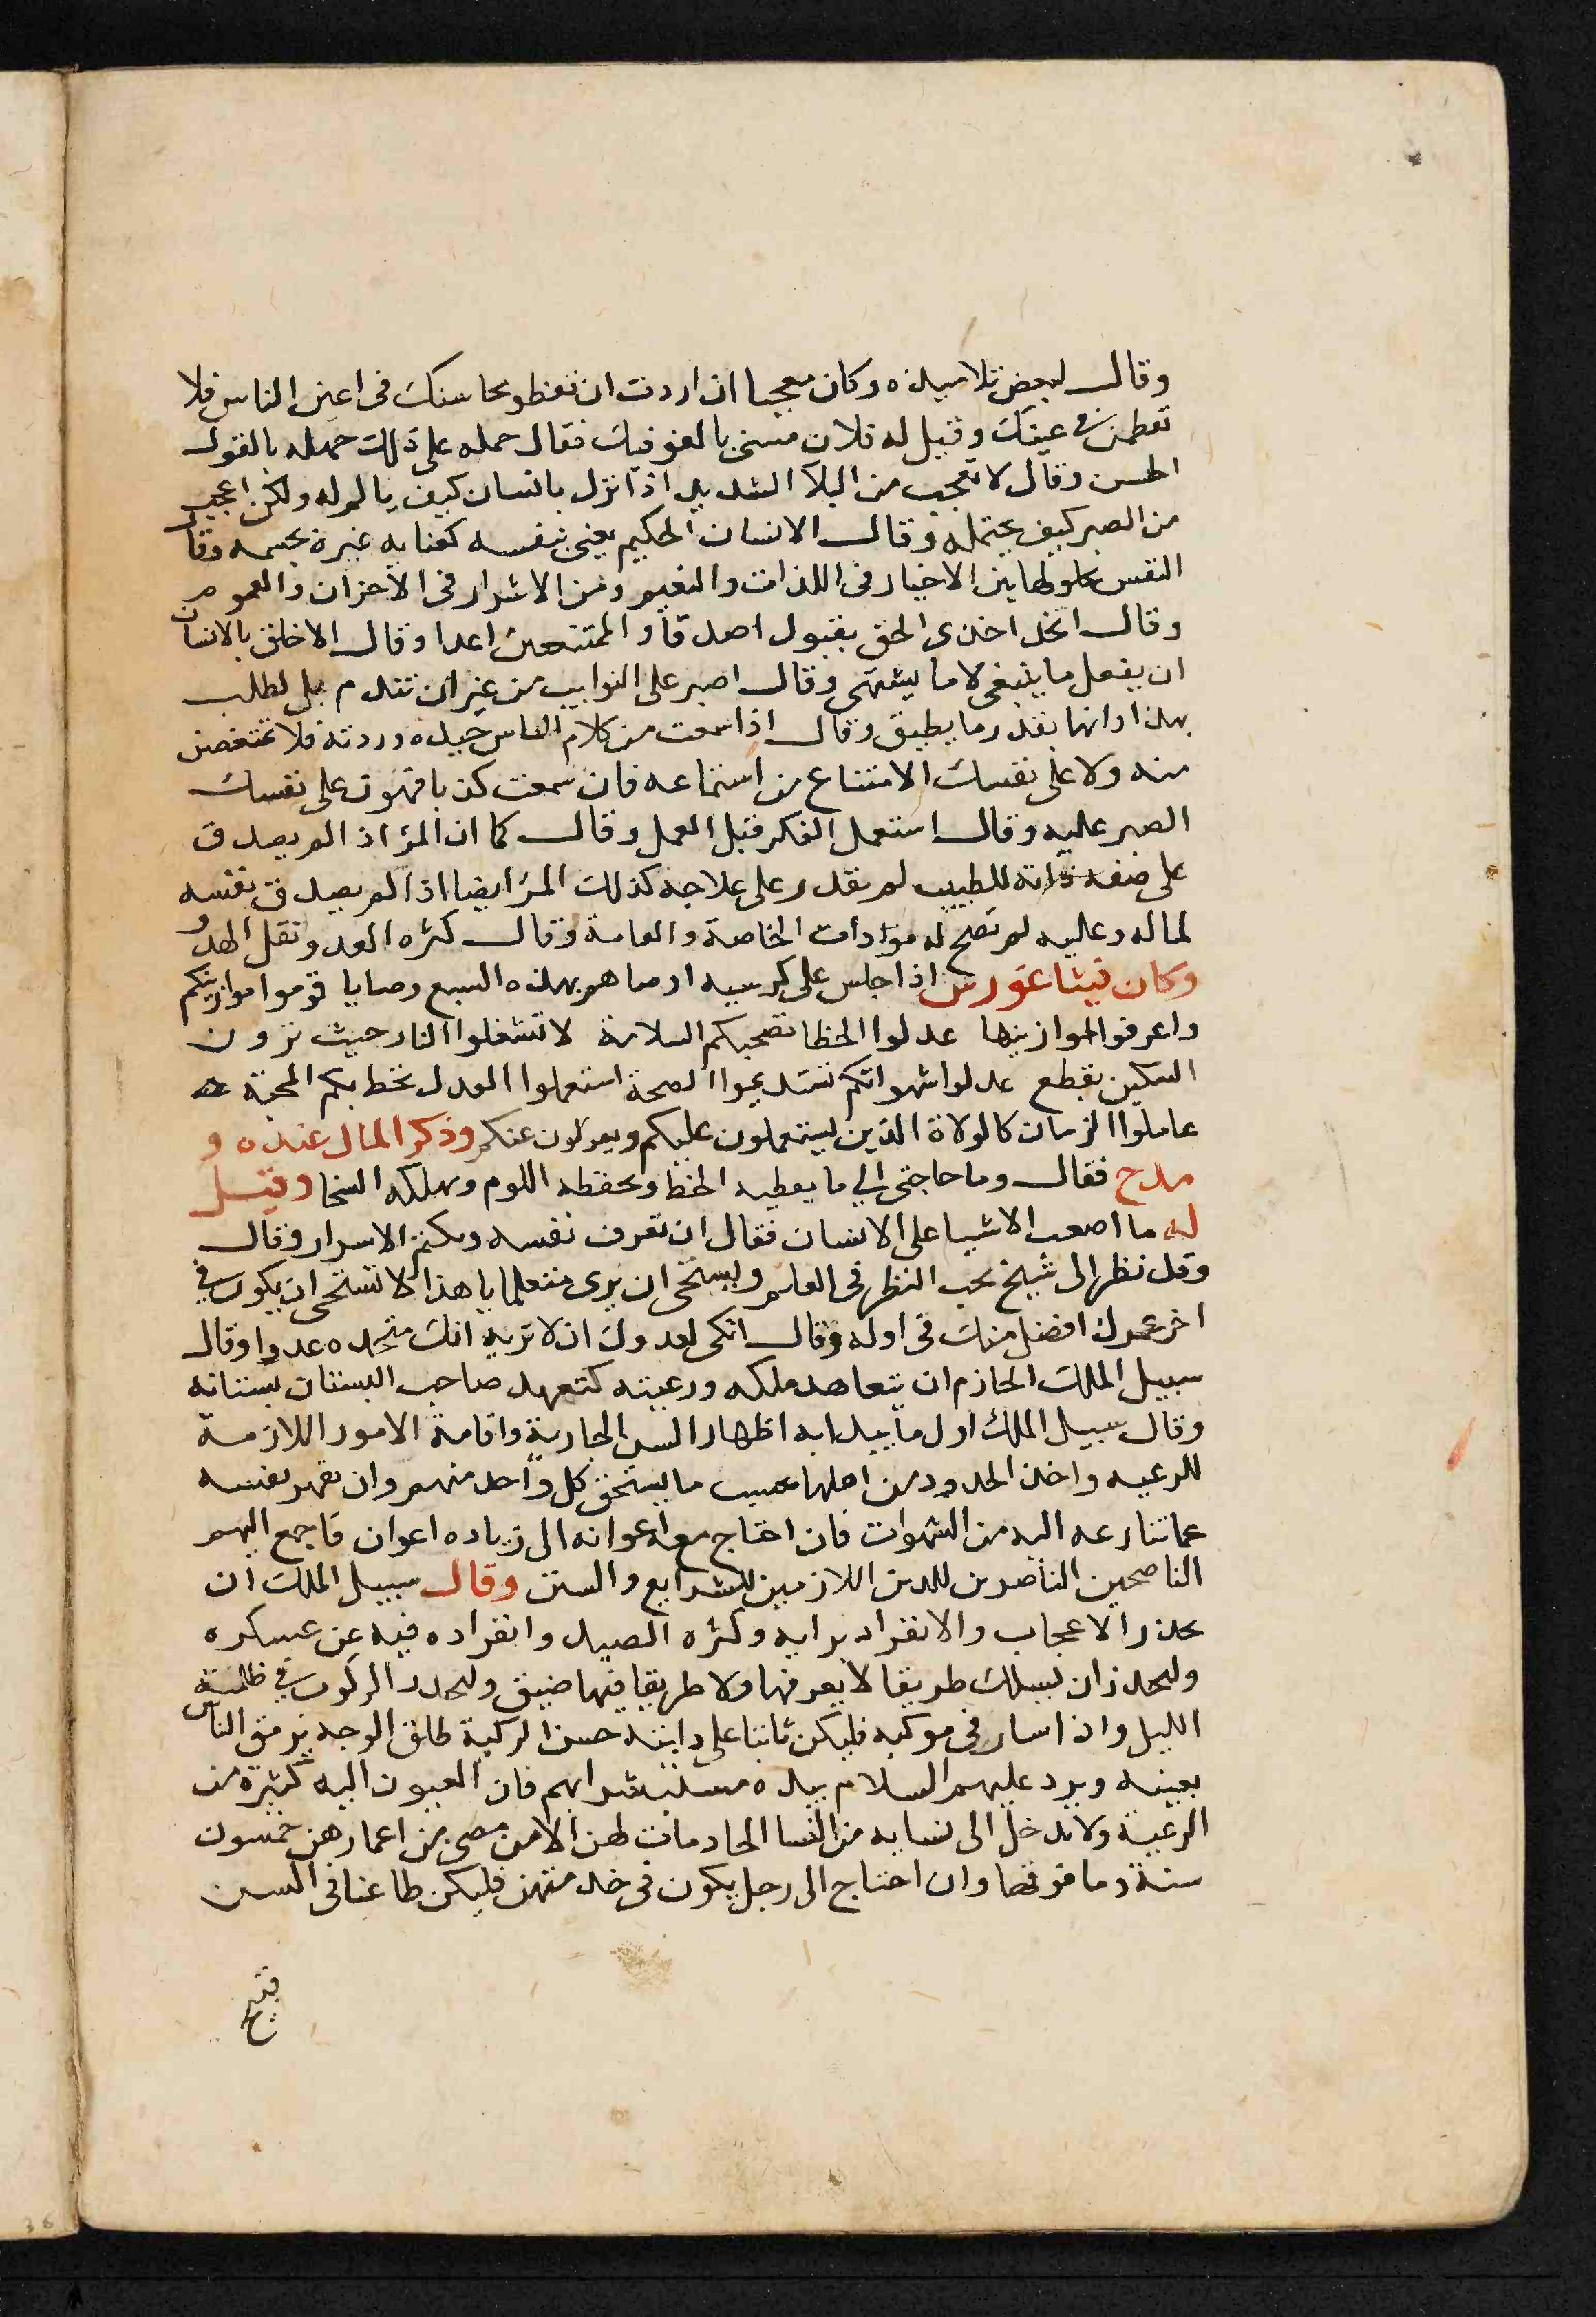 وقال لبعض تلاميذه وكان معجبا ان اردت ان تعظم محاسنك فى اعين الناس فلا
تعظمن فى عينك وقيل له فلان مسى بالقول فيك فقال حمله على ذلك جهله بالقول
الحسن وقال لا تعجب من البلآ الشديد اذا نزل بانسان كيف يالم له ولكن اعجب
من الصبر كيف يحتمله وقال الانسان الحكيم يعنى بنفسه كعنايه غيره بجسمه وقال
النفس حلولها بين الاخيار فى اللذات والنعيم وبين الاشرار فى الاحزان والغموم
وقال اتخذ اخذى الحق بقبول اصدقا و الممتنعين اعدا وقال الاخلق بالانسان
ان يفعل ما ينبغى لا ما يشتهى وقال اصبر على النوايب من غير ان تتذمر بل لطلب
بهذا دانها بقدر ما يطيق وقال اذا سمعت من كلام الناس جيده ورديه فلا تمتعضن
منه ولا على نفسك الامتناع من استماعه فان سمعت كذبا فهون على نفسك
الصبر عليه وقال استعمل الفكر قبل العمل وقال كما ان المرء اذا لم يصدق
على صفة ذاته للطبيب لم يقدر على علاجه كذلك المرء ايضا اذا لم يصدق نفسه
لماله وعليه لم تصح له موادات الخاصة والعامة وقال كثره العدو تقل الهدو
وكان فيثاغورس اذا جلس على كرسيه اوصاهم بهذه السبع وصايا قوموا موازينكم
واعرفوا اوزانها عدلوا الخطا تصحبكم السلامة لا تشعلوا النار حيث ترون
السكين يقطع عدلوا شهواتكم تستديموا الصحة استعملوا العدل تحط بكم المحبة
عاملوا الزمان كالولاة الذين يستعملون عليكم ويعزلون عنكم وذكر المال عنده و
مدح فقال وما حاجتى الي ما يعطيه الحظ ويحفظه اللوم ويهلكه السخا وقيل
له ما اصعب الاشيا على الانسان فقال ان تعرف نفسه ويكتم الاسرار وقال
وقد نظر الى شيخ يحب النظر فى العلم ويستحى ان يرى متعلما يا هذا لا تستحى ان يكون فى
اخر عمرك افضل منك فى اوله وقال انكى لعدوك ان لا تريه انك متخذه عدوا وقال
سبيل الملك الحازم ان يتعاهد ملكه ورعيته كتعهد صاحب البستان بستانه
وقال سبيل الملك اول ما يبدا به اظهار السير الجارية واقامة الامور اللازمة
للرعيه واخذ الحدود من اهلها بحسب ما يستحق كل واحد منهم وان يقهر نفسه
عما تنازعه اليه من الشهوات فان احتاج مع اعوانه الى زياده اعوان فاجمع اليهم
الناصحين الناصرين للدين اللازمين للشرايع والسنن وقال سبيل الملك ان
يحذر الاعجاب والانفراد برايه وكثره الصيد وانفراده فيه عن عسكره
وليحذر ان يسلك طريقا لا يعرفها ولا طريقا فيها ضيق وليحذر الركوب فى ظلمة
الليل واذا سار فى موكبه فليكن ثابتا على دابته حسن الركبة طلق الوجه يرمق الناس
بعينه ويرد عليهم السلام بيده مستبشرا بهم فان العيون اليه كثيرة من
الرعية ولا يدخل الى نسايه من النسا الخادمات لهن الا من مضى من اعمارهن خمسون
سنة وما فوقها وان احتاج الى رجل يكون فى خدمتهن فليكن طاعنا فى السن